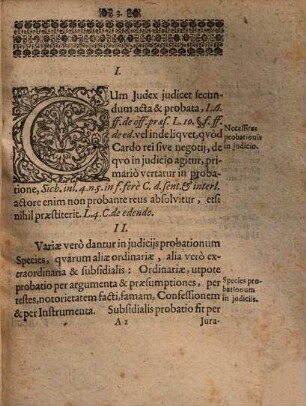 3.
I.
CUm Judex judicet secun-
dum acta & probata, L. 6.
ff. de off. præs. L. 10. §. ff.
de ed. vel inde liqvet, qvòd
Cardo rei sive negotij, de
qvo in judicio agitur, pri-
mario vertatur in proba-
tione, Sich. in l. 4. n. 5. in f. ferè C. d. sent. & interl.
actore enim non probante reus absolvitur, etsi
nihil præstiterit. L. 4. C. de edendo.
Necessitas
probationis
in judicio.
II.
Variæ verò dantur in judicijs probationum
Species, qvarum aliæ ordinariæ, alia verò ex-
traordinaria & subsidialis: Ordinariæ, utpote
probatio per argumenta & præsumptiones, per
testes, notorietatem facti, famam, Confessionem
& per Instrumenta. Subsidialis probatio fit per
Species pro-
bationum
in judiciis.
A 2 Jura-